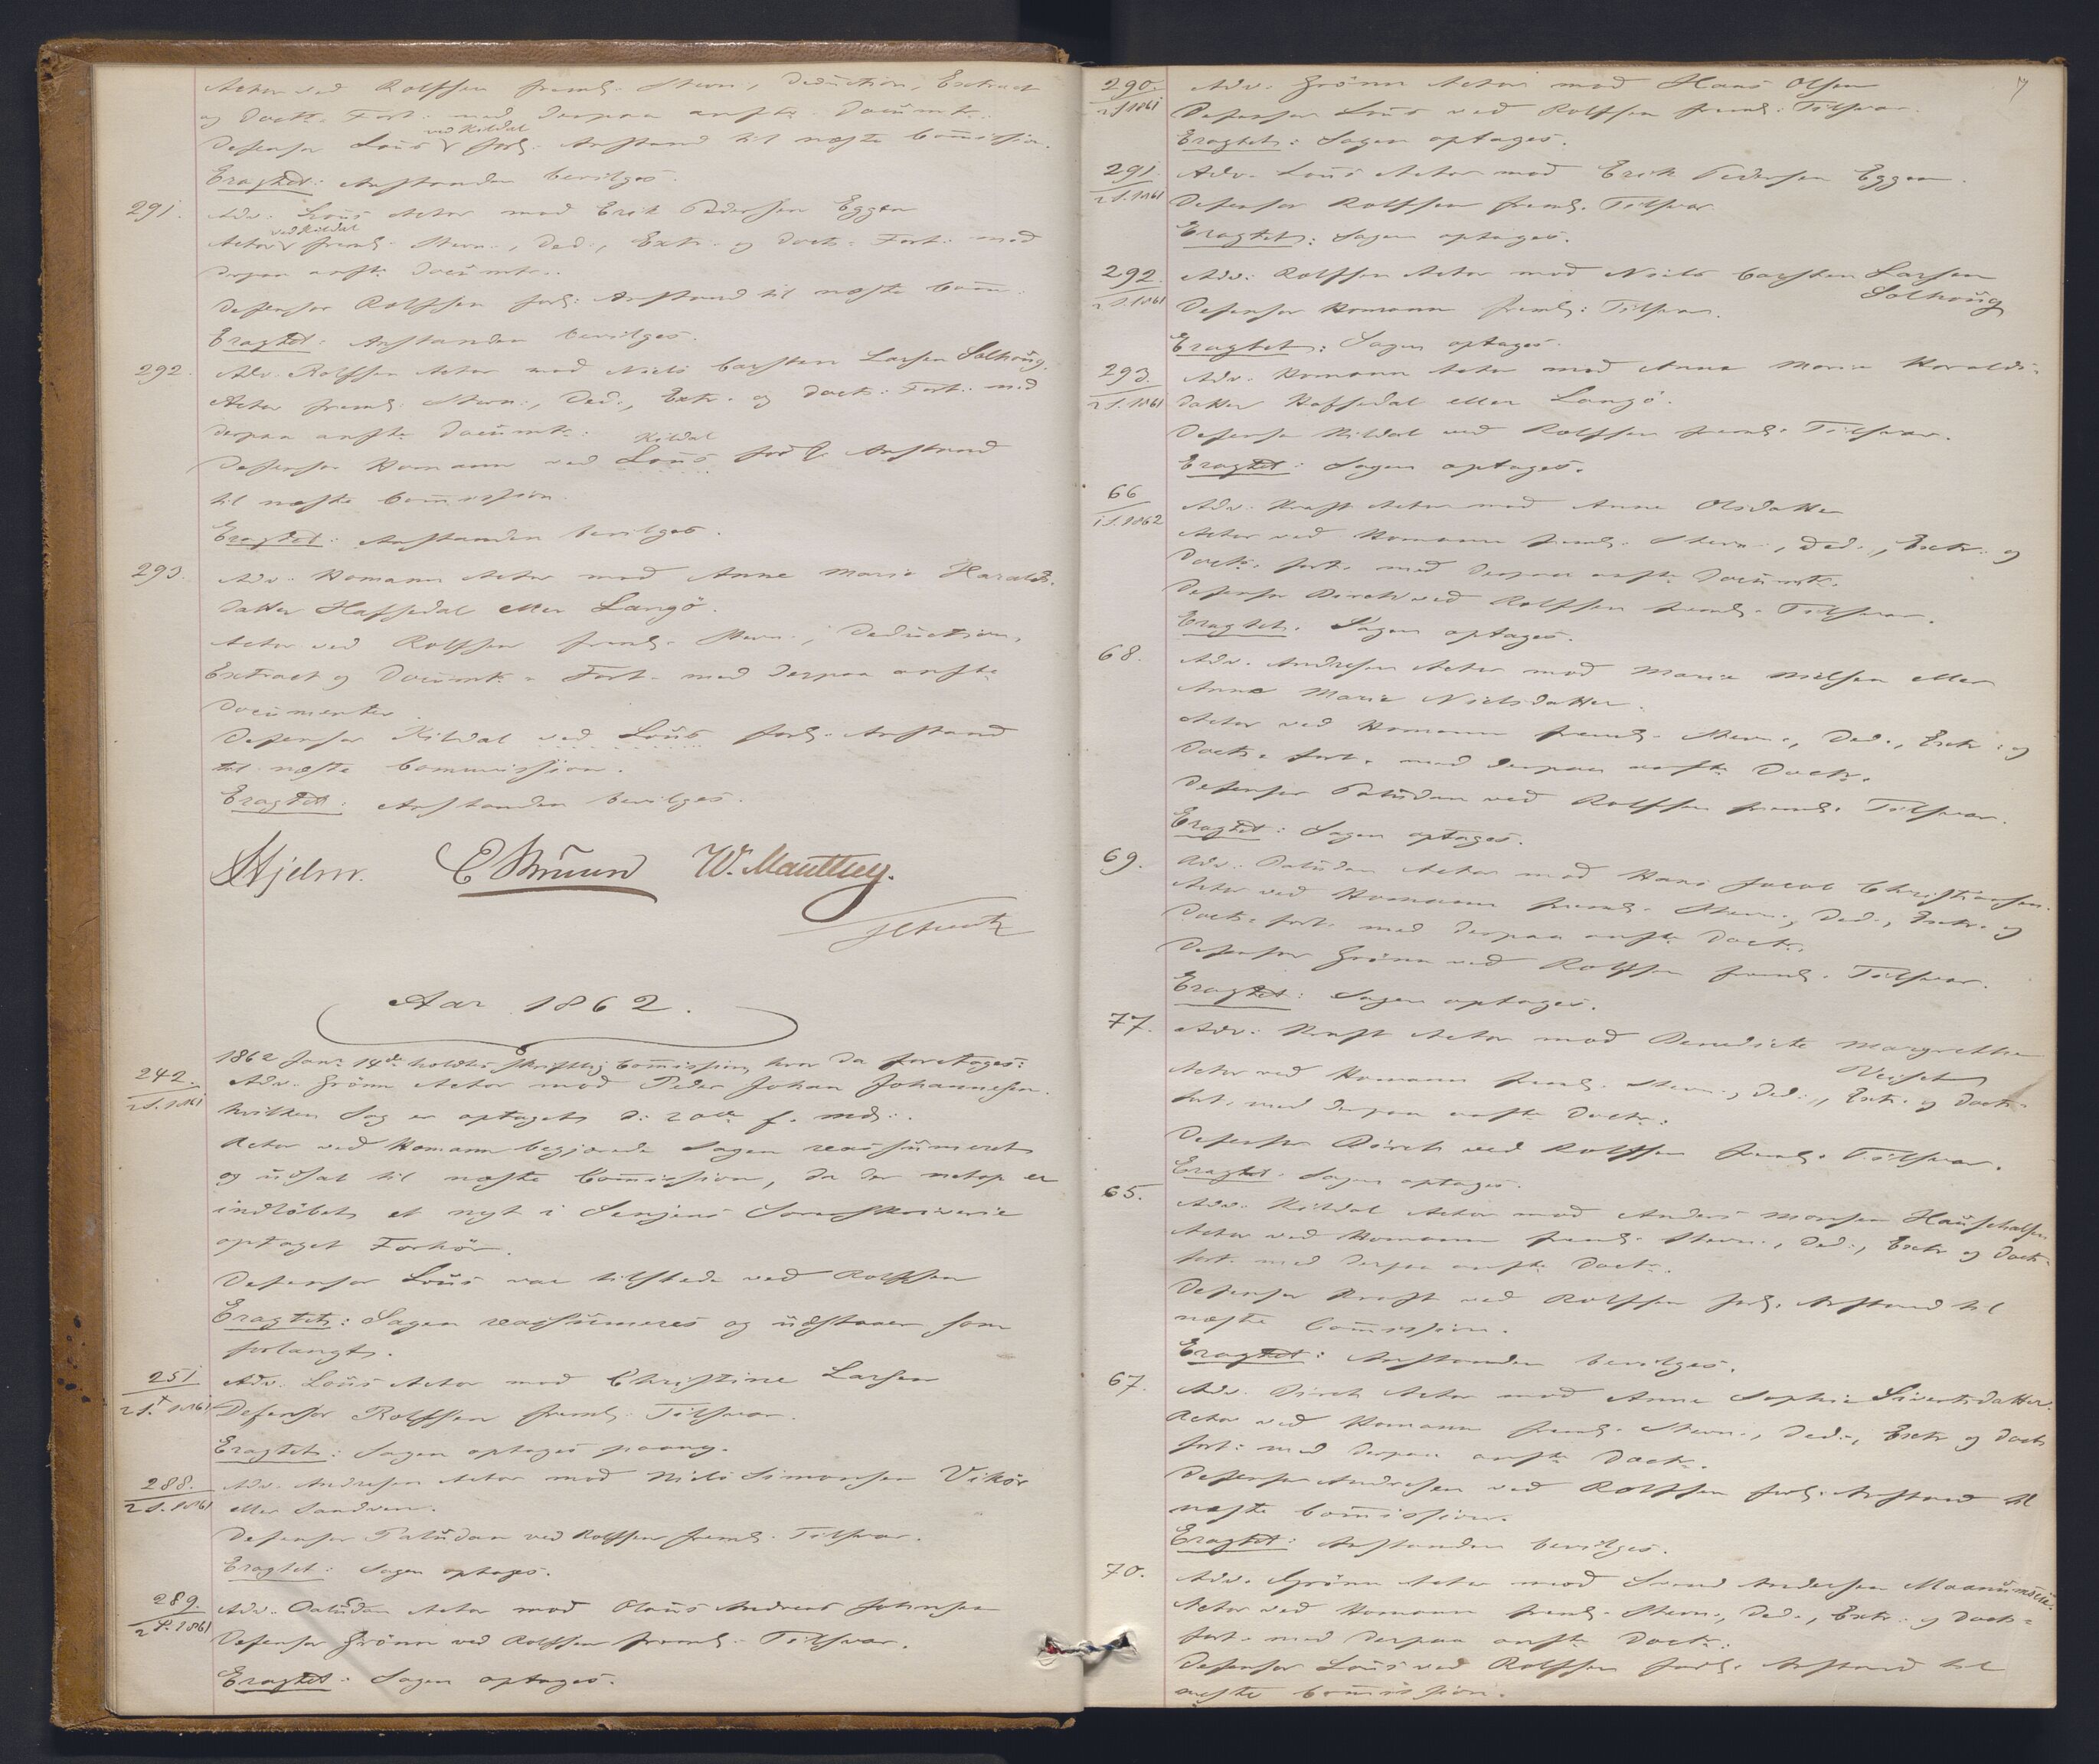 Actor ved Rolffsen freml. Stevn, Deduction, Extract
og Docts. Fort. med derpaa anfte Documtr.
Defensor Loüs ved Kildal forl. Anstand til næste Commission.
Eragtet: Anstanden bevilges.
291. Adv. Loüs Actor mod Erik Pedersen Eggen
Actor ved Kildal freml. Stevn., Ded., Extr. og Docts. Fort. med
derpaa anfte Documtr.
Defensor Rolffsen forl. Anstand til næste Comm.
Eragtet: Anstanden bevilges.
292. Adv. Rolffsen Actor mod Niels Carsten Larsen Solhoüg.
Actor freml. Stevn., Ded., Extr. og Docts. Fort. med
derpaa anfte Documtr.
Defensor Homann ved Loüs Kildal forl. Anstand
til næste Commission.
Eragtet: Anstanden bevilges.
293. Adv. Homann Actor mod Anne Marie Haralds-
datter Hafsedal eller Langö.
Actor ved Rolffsen freml. Stevn., Deduction,
Extract og Documts. Fort. med derpaa anfte
Documenter
Defensor Kildal ved Loüs forl. Anstand
til næste Commission.
Eragtet: Anstanden bevilges.
Hjelm. EBruun W. Manthey.
Aar 1862.
1862 Janr. 14de holdtes skriftlig Commission, hvor da foretages:
242. 2 S. 1861 Adv. Grönn Actor mod Peder Johan Johannesen.
hvilken Sag er optaget d. 20de f. Md.
Actor ved Homann begjærede Sagen reassümeret
og üdsat til næste Commission, da der netop er
indlöbet et nyt i Senjens Sorenskriverie
optaget Forhör.
Defensor Loüs var tilstede ved Rolffsen
Eragtet: Sagen reassümeres og üdstaaer som
forlangt.
251 2 S. 1861 Adv. Loüs Actor mod Christine Larsen
Defensor Rolffsen freml. Tilsvar.
Eragtet: Sagen optages paany.
288. 2 S. 1861 Adv. Andresen Actor mod Niels Simonsen Vikör
eller Sandven.
Defensor Palüdan ved Rolffsen freml. Tilsvar.
Eragtet: Sagen optages.
289. 2 S. 1861 Adv. Palüdan Actor mod Olaüs Andreas Johnsen
Defensor Grönn ved Rolffsen freml. Tilsvar.
Eragtet: Sagen optages.
7
290. 2 S 1861 Adv. Grönn Actor mod Hans Olsen
Defensor Loüs ved Rolffsen freml. Tilsvar.
Eragtet: Sagen optages.
291. 2 S. 1861 Adv. Loüs Actor mod Erik Pedersen Eggen.
Defensor Rolffsen freml. Tilsvar.
Eragtet: Sagen optages.
292. 2 S. 1861 Adv. Rolffsen Actor mod Niels Carsten Larsen
Solhoüg
Defensor Homann freml. Tilsvar.
Eragtet: Sagen optages.
293. 2 S. 1861 Adv. Homann Actor mod Anna Maria Haralds-
datter Hafsedal eller Langö.
Defensor Kildal ved Rolffsen freml. Tilsvar.
Eragtet: Sagen optages.
66 1 S. 1862 Adv. Kraft Actor mod Anne Olsdatter
Actor ved Homann freml. Stevn., Ded., Extr. og
Docts. fort. med derpaa anfte Documtr.
Defensor Dirch ved Rolffsen freml. Tilsvar.
Eragtet. Sagen optages.
68. Adv. Andresen Actor mod Marie Nielsen eller
Anne Marie Nielsdatter.
Actor ved Homann freml. Stevn., Ded., Extr. og
Docts. fort. med derpaa anfte Doctr.
Defensor Palüdan ved Rolffsen freml. Tilsvar.
Eragtet: Sagen optages.
69. Adv. Palüdan Actor mod Hans Jacob Christiansen.
Actor ved Homann freml. Stevn., Ded., Extr. og
Docts. fort. med derpaa anfte Doctr.
Defensor Grönn ved Rolffsen freml. Tilsvar.
Eragtet: Sagen optages.
77. Adv. Kraft Actor mod Benedicte Margrethe
Veiset
Actor ved Homann freml. Stevn., Ded., Extr. og Docts.
fort. med derpaa anfte Doctr.
Defensor Dirch ved Rolffsen freml. Tilsvar.
Eragtet. Sagen optages.
65. Adv. Kildal Actor mod Anders Monsen
Actor ved Homann freml. Stevn., Ded., Extr. og Docts.
fort. med derpaa anfte Doctr.
Defensor Kraft ved Rolffsen forl. Anstand til
næste Commission.
Eragtet: Anstanden bevilges.
67. Adv. Dirch Actor mod Anne Sophie Sivertsdatter.
Actor ved Homann freml. Stevn., Ded., Extr. og Docts
fort. med derpaa anfte Doctr.
Defensor Andresen ved Rolffsen forl. Anstand til
næste Commission.
Eragtet: Anstanden bevilges.
70. Adv. Grönn Actor mod Svend Andersen
Actor ved Homann freml. Stevn., Ded., Extr. og Docts.
fort. med derpaa anfte Doctr.
Defensor Loüs ved Rolffsen forl. Anstand til
næste Commission.